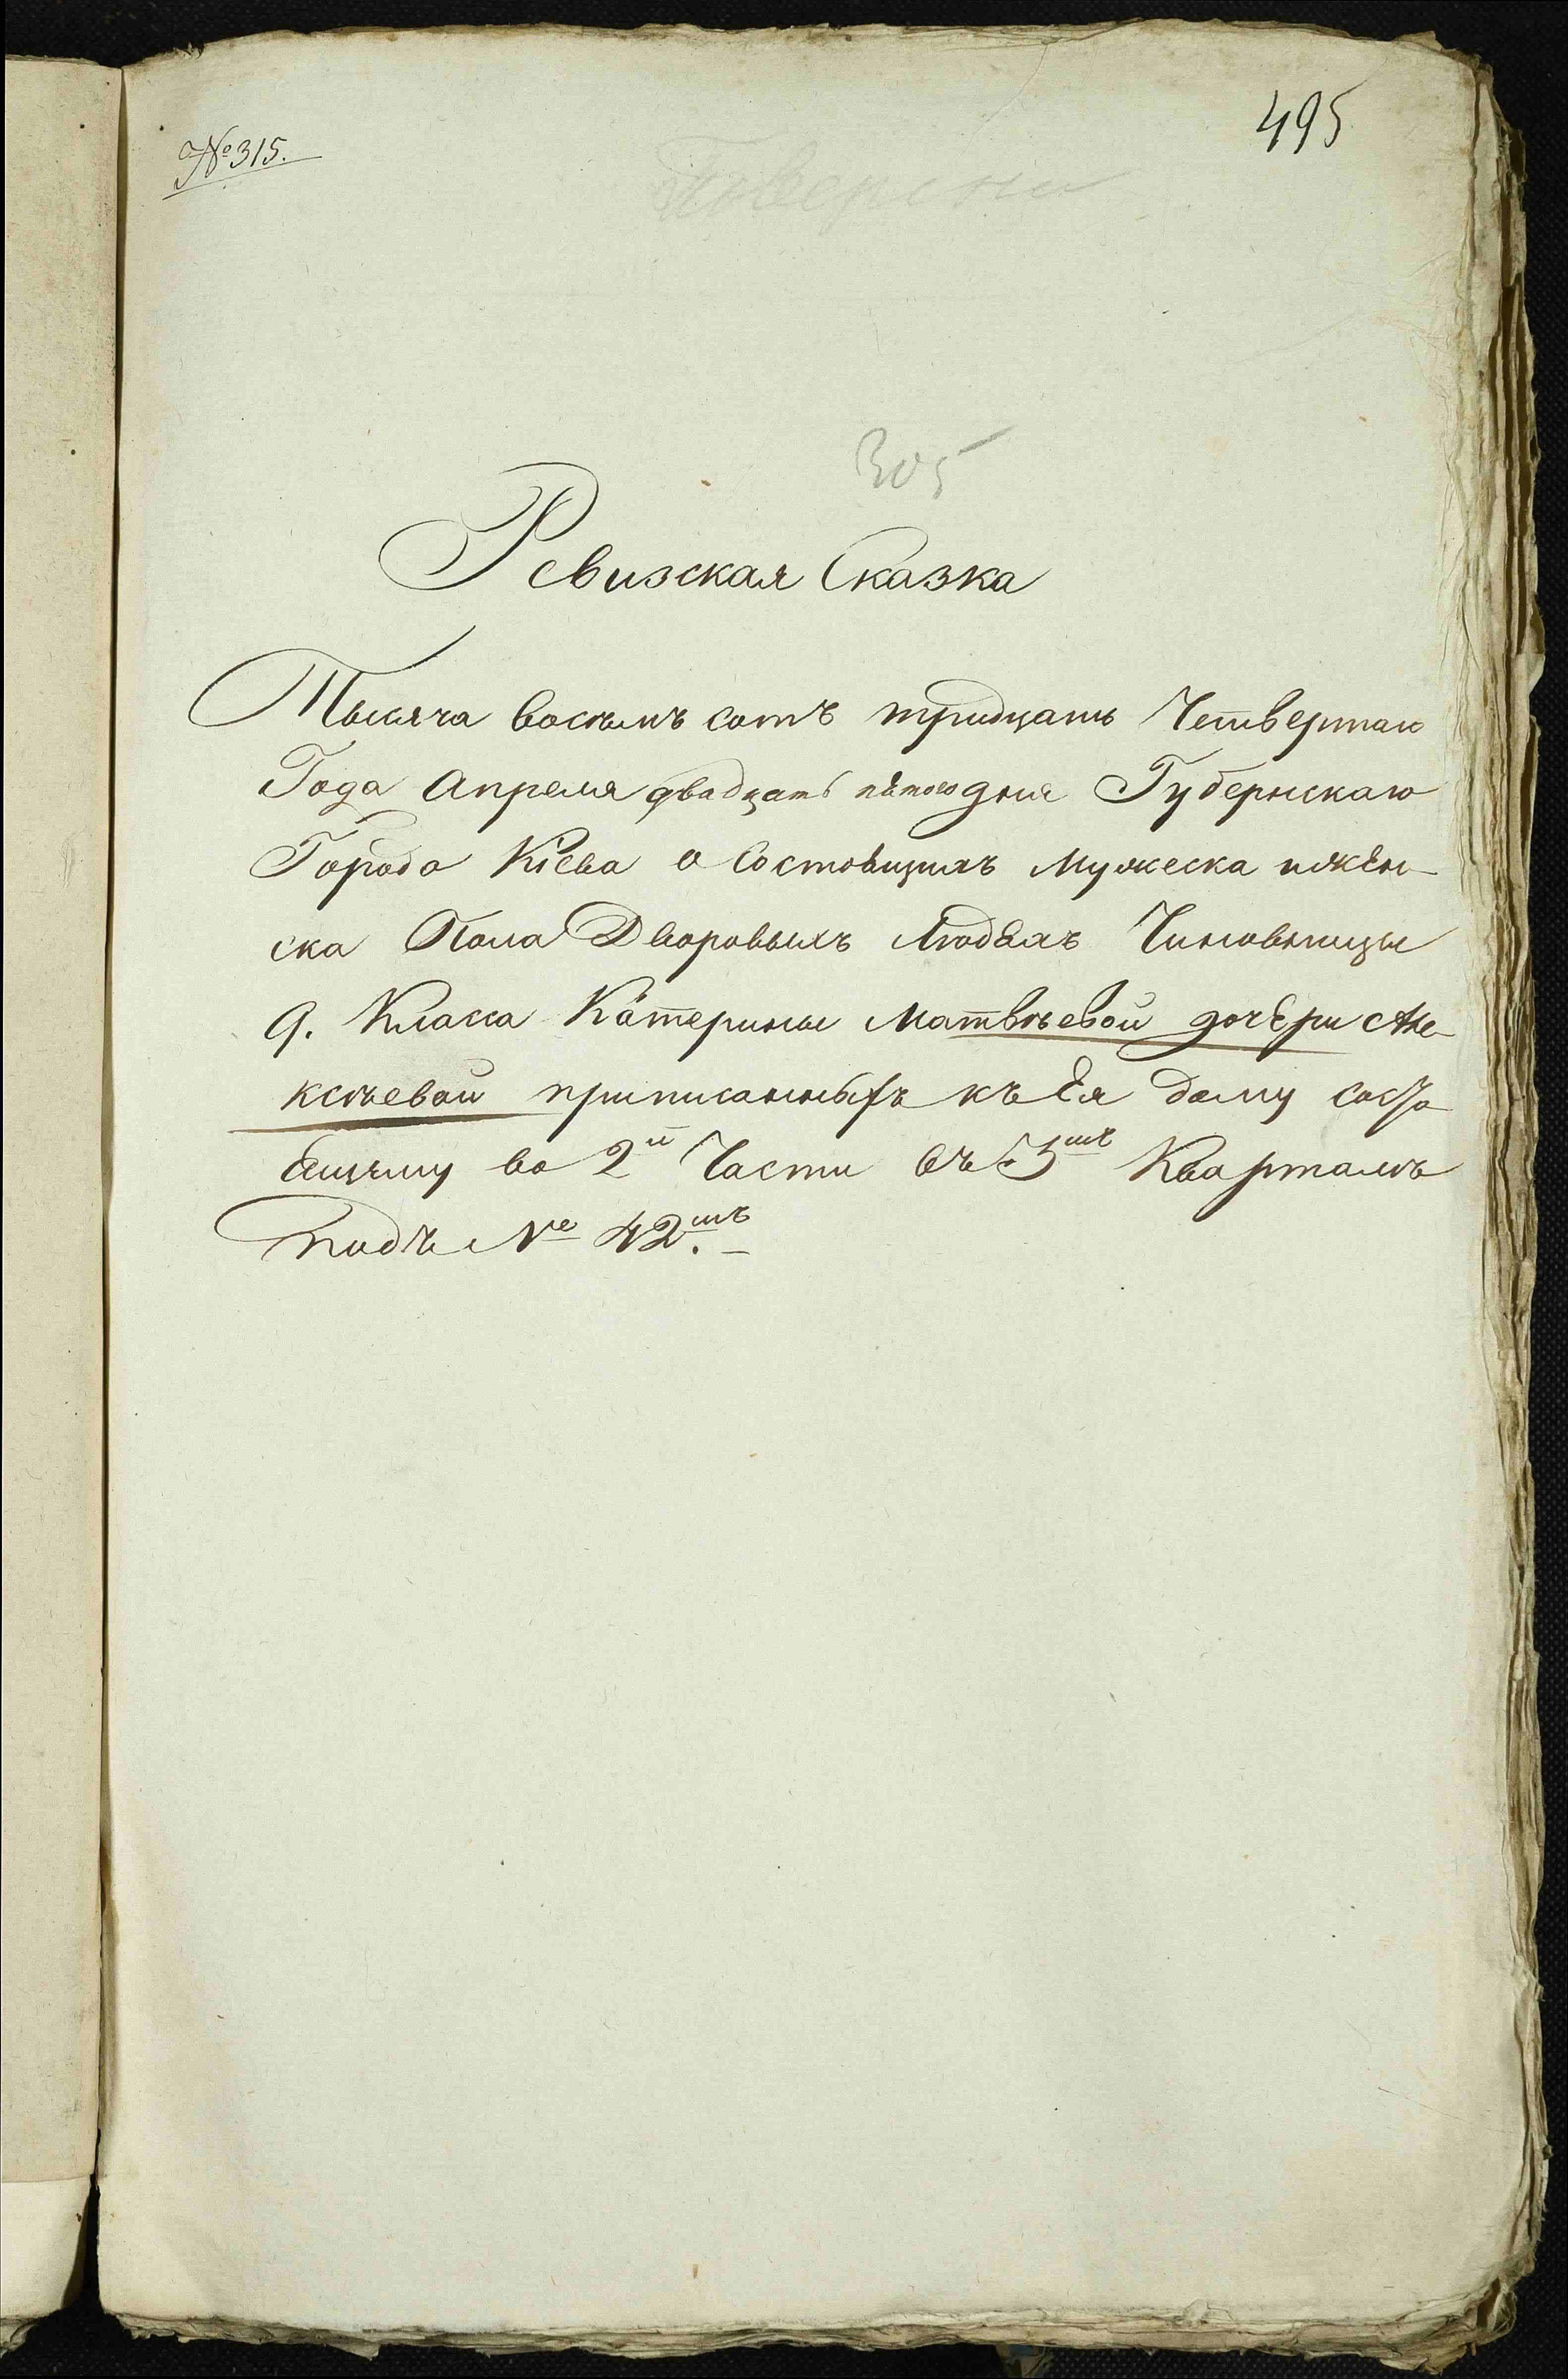 № 315.
495
Поверена
305
Ревизская Сказка
Тысяча восемъ сотъ тридцать Четвертаго
Года Апреля двадцать пятого дня Губернскаго
Города Кіева о Состоящихъ Мужеска и жен-
ска Пола Дворовыхъ Людяхъ Чиновницы
9. Класса Катерины Матвѣевой дочери Але-
ксѣевой приписанныхъ къ Ея дому состо
ящему во 2й Части въ 3мъ Кварталѣ
подъ № 42мъ.